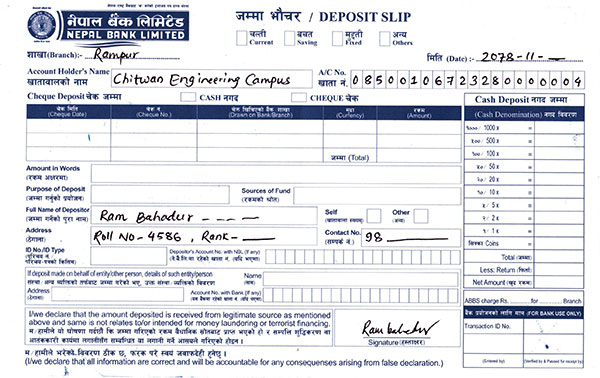 नेपाल बैंक लिमिटेड
NEPAL BANK LIMITED
जम्मा भौचर / DEPOSIT SLIP
चल्ती Current बचत Saving मुद्दती Fixed अन्य Others
शाखा(Branch):- Rampur
मिति (Date) :- 2078-11-
Account Holder's Name
खातावालाको नाम
Chitwan Engineering Campus
A/C No.
खाता नं.
08500106723280000004
Cheque Deposit चेक जम्मा CASH नगद CHEQUE चेक
Cash Deposit नगद जम्मा
चेक मिति (Cheque Date)
चेक नं (Cheque No.)
(Drawn on Bank/Branch)
(Currency)
रकम (Amount)
(Cash Denomination) नगद विवरण
१००० / 1000 x =
५०० / 500 x =
१०० / 100 x =
५० / 50 x =
२० / 20 x =
१० / 10 x =
५ / 5 x =
२ / 2 x =
१ / 1 x =
सिक्का Coins =
जम्मा (Total)
Total (जम्मा)
Less: Return (फिर्ता)
Amount in Words
(रकम अक्षरमा)
Purpose of Deposit
(जम्मा गर्नुको प्रयोजन)
Sources of Fund
(रकमको स्रोत)
Full Name of Depositor
(जम्मा गर्नेको पुरा नाम)
Ram Bahadur - - - -
Self
Other
(अन्य)
Address
(ठेगाना)
Roll No- 4586, Rank-
Contact No.
(सम्पर्क नं.)
98
ID No./ID Type
Depositor's Account No. with NBL (if any)
If deposit made on behalf of entity/other person, details of such entity/person
Name
(नाम)
Address
(ठेगाना)
Account No. with NBL (If any)
ABBS charge Rs. for Branch
I/we declare that the amount deposited is received from legitimate source as mentioned
above and same is not relates to/or intended for money laundoring or terrorist financing.
Ram bahadur
Signature (हस्ताक्षर)
(FOR BANK USE ONLY)
Transaction ID No.
(Entered by)
(Verified by & Passed for receipt by)
म. हामीले भरेको विवरण ठीक छ, फरक परे स्वयं जवाफदेही हुनेछु ।
(I/we declare that all information are correct and will be accountable for any consequenses arising from false declaration.)